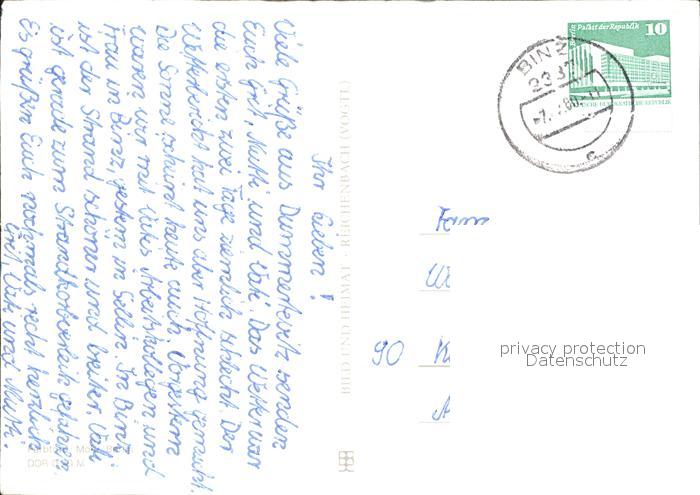 Ihr Lieben!
Viele Grüße aus Dummertevitz senden
Euch Grit, Mutti und Vati. Das Wetter war
die ersten zwei Tage ziemlich schlecht. Der
Wetterbericht hat uns aber Hoffnung gemacht.
Die Sonne scheint heute auch. Vorgestern
waren wir mit Vatis Arbeitskollegen und
Frau in Binz, gestern in Sellin. In Binz
ist der Strand schöner und breiter. Vati
ist gerade zum Strandkorbverleih gefahren.
Es grüßen Euch nochmals recht herzlich
Grit, Vati und Mutti.
BILD UND HEIMAT · REICHENBACH (VOGTL)
Palast der Republik
10
DEUTSCHE DEMOKRATISCHE REPUBLIK
BINZ
2337
c
Fam
90 K
privacy protection
Datenschutz
DDR